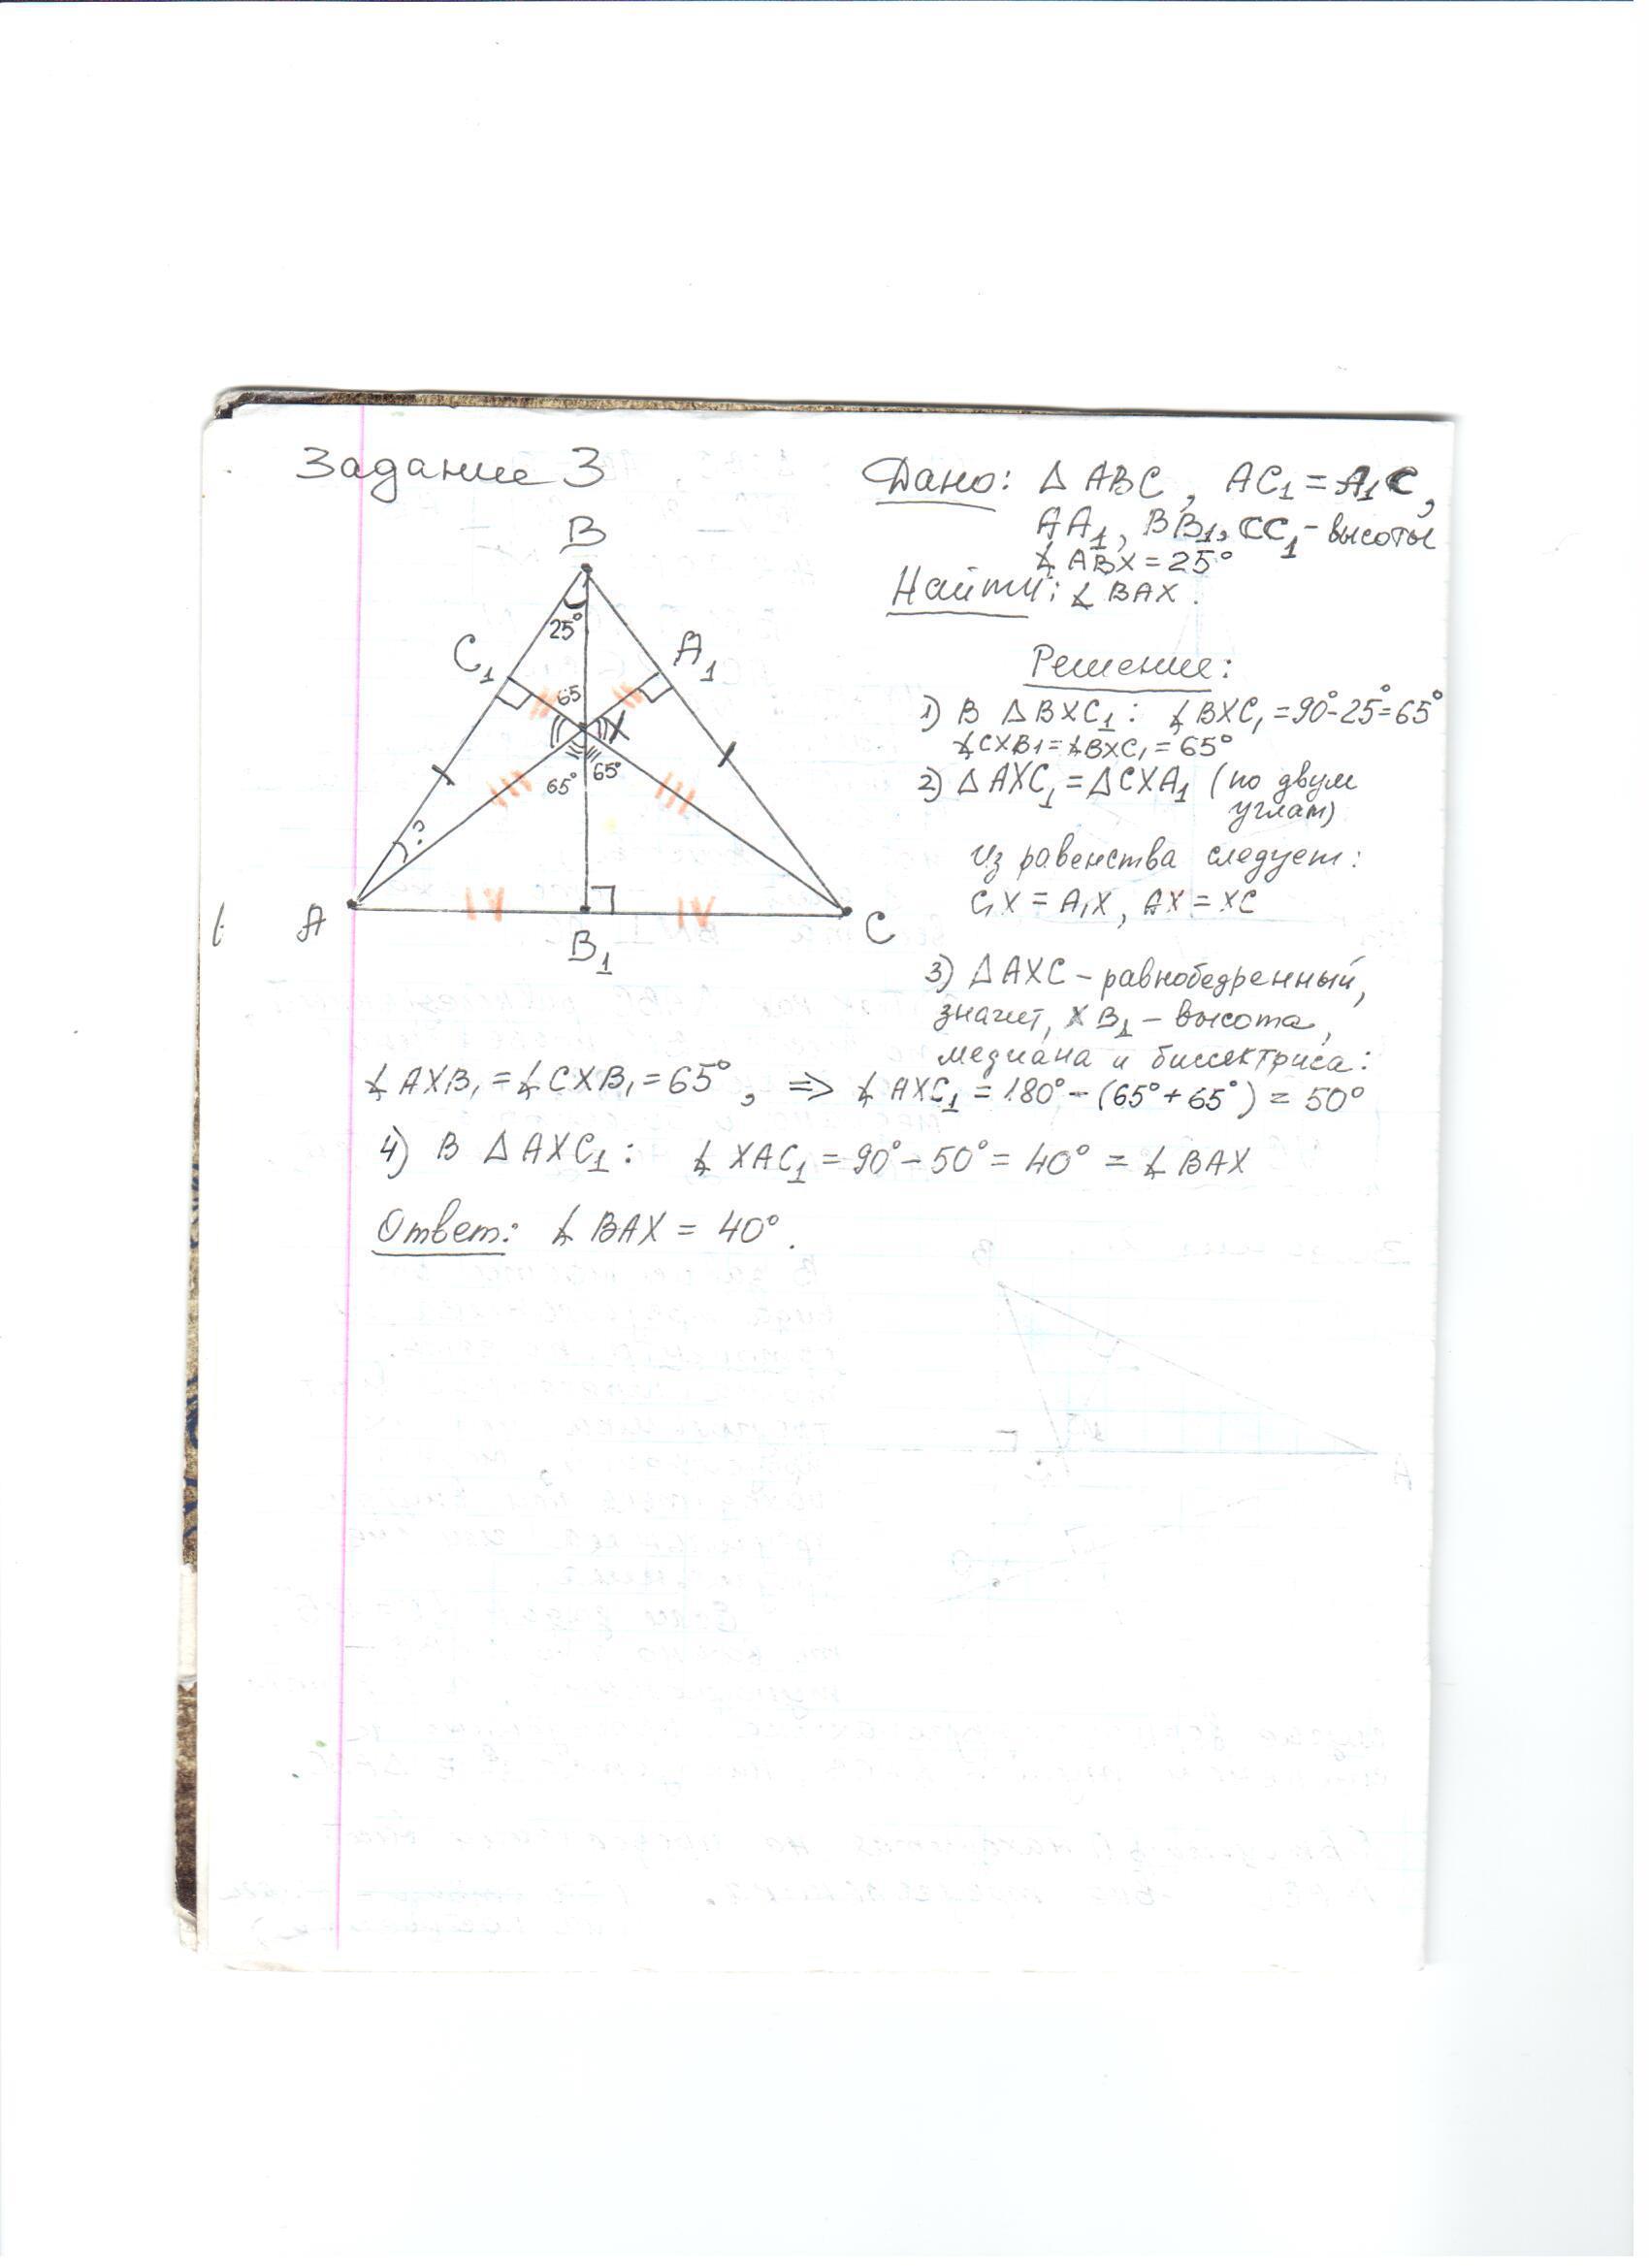 Задание 3
Дано: Δ ABC, AC₁ = A₁C,
AA₁, BB₁, CC₁ - высоты
∡ ABX = 25°
Найти: ∡ BAX.
B
25°
C₁
A₁
65
X
65°
65°
?
A
B₁
C
Решение:
1) В Δ BXC₁: ∡ BXC₁ = 90° - 25° = 65°
∡CXB₁ = ∡BXC₁ = 65°
2) Δ AXC₁ = Δ CXA₁ (по двум
углам)
Из равенства следует:
C₁X = A₁X, AX = XC
3) Δ AXC – равнобедренный,
значит, XB₁ – высота,
медиана и биссектриса:
∡ AXB₁ = ∡ CXB₁ = 65°, => ∡ AXC₁ = 180° - (65° + 65°) = 50°
4) В Δ AXC₁: ∡ XAC₁ = 90° - 50° = 40° = ∡ BAX
Ответ: ∡ BAX = 40°.